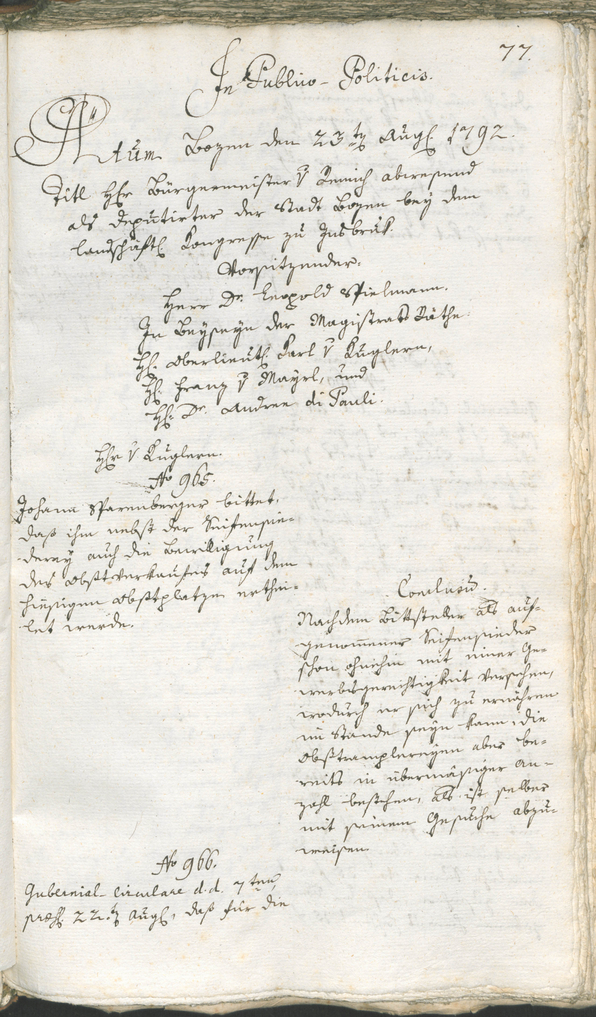 77.
In Publico-Politicis.
Actum Bozen den 23ten Augl. 1792.
Titl Hr Bürgermeister v Remich abwesend
als Deputirter der Stadt Bozen bey dem
landschäftl. Kongresse zu Insbruk
Vorsitzender.
Herr Dr. Leopold Spielmann.
In Beyseyn der Magistrats Räthe
H. Oberlieut. Karl v Kuglern,
H. Franz v Mayrl, und
H. Dr. Andree di Pauli.
Hr v Kuglern.
No 965.
Johann Sparenberger bittet,
daß ihm nebst der Seifensie-
derey auch die Bewilligung
des Obstverkaufes auf dem
hiesigen Obstplatze erthei-
let werde.
Conclusū.
Nachdem Bittsteller als auf-
genommener Seifensieder
schon ohnehin mit einer Ge-
werbsgerechtigkeit versehen,
wodurch er sich zu ernähren
im Stande seyn kann, die
Obstramplereyen aber be-
reits in übermäsiger An-
zahl bestehen, als ist selber
mit seinem Gesuche abzu-
weisen.
No 966.
Gubernial-Circulare d.d. 7ten,
præs. 22.t Augl., daß für die